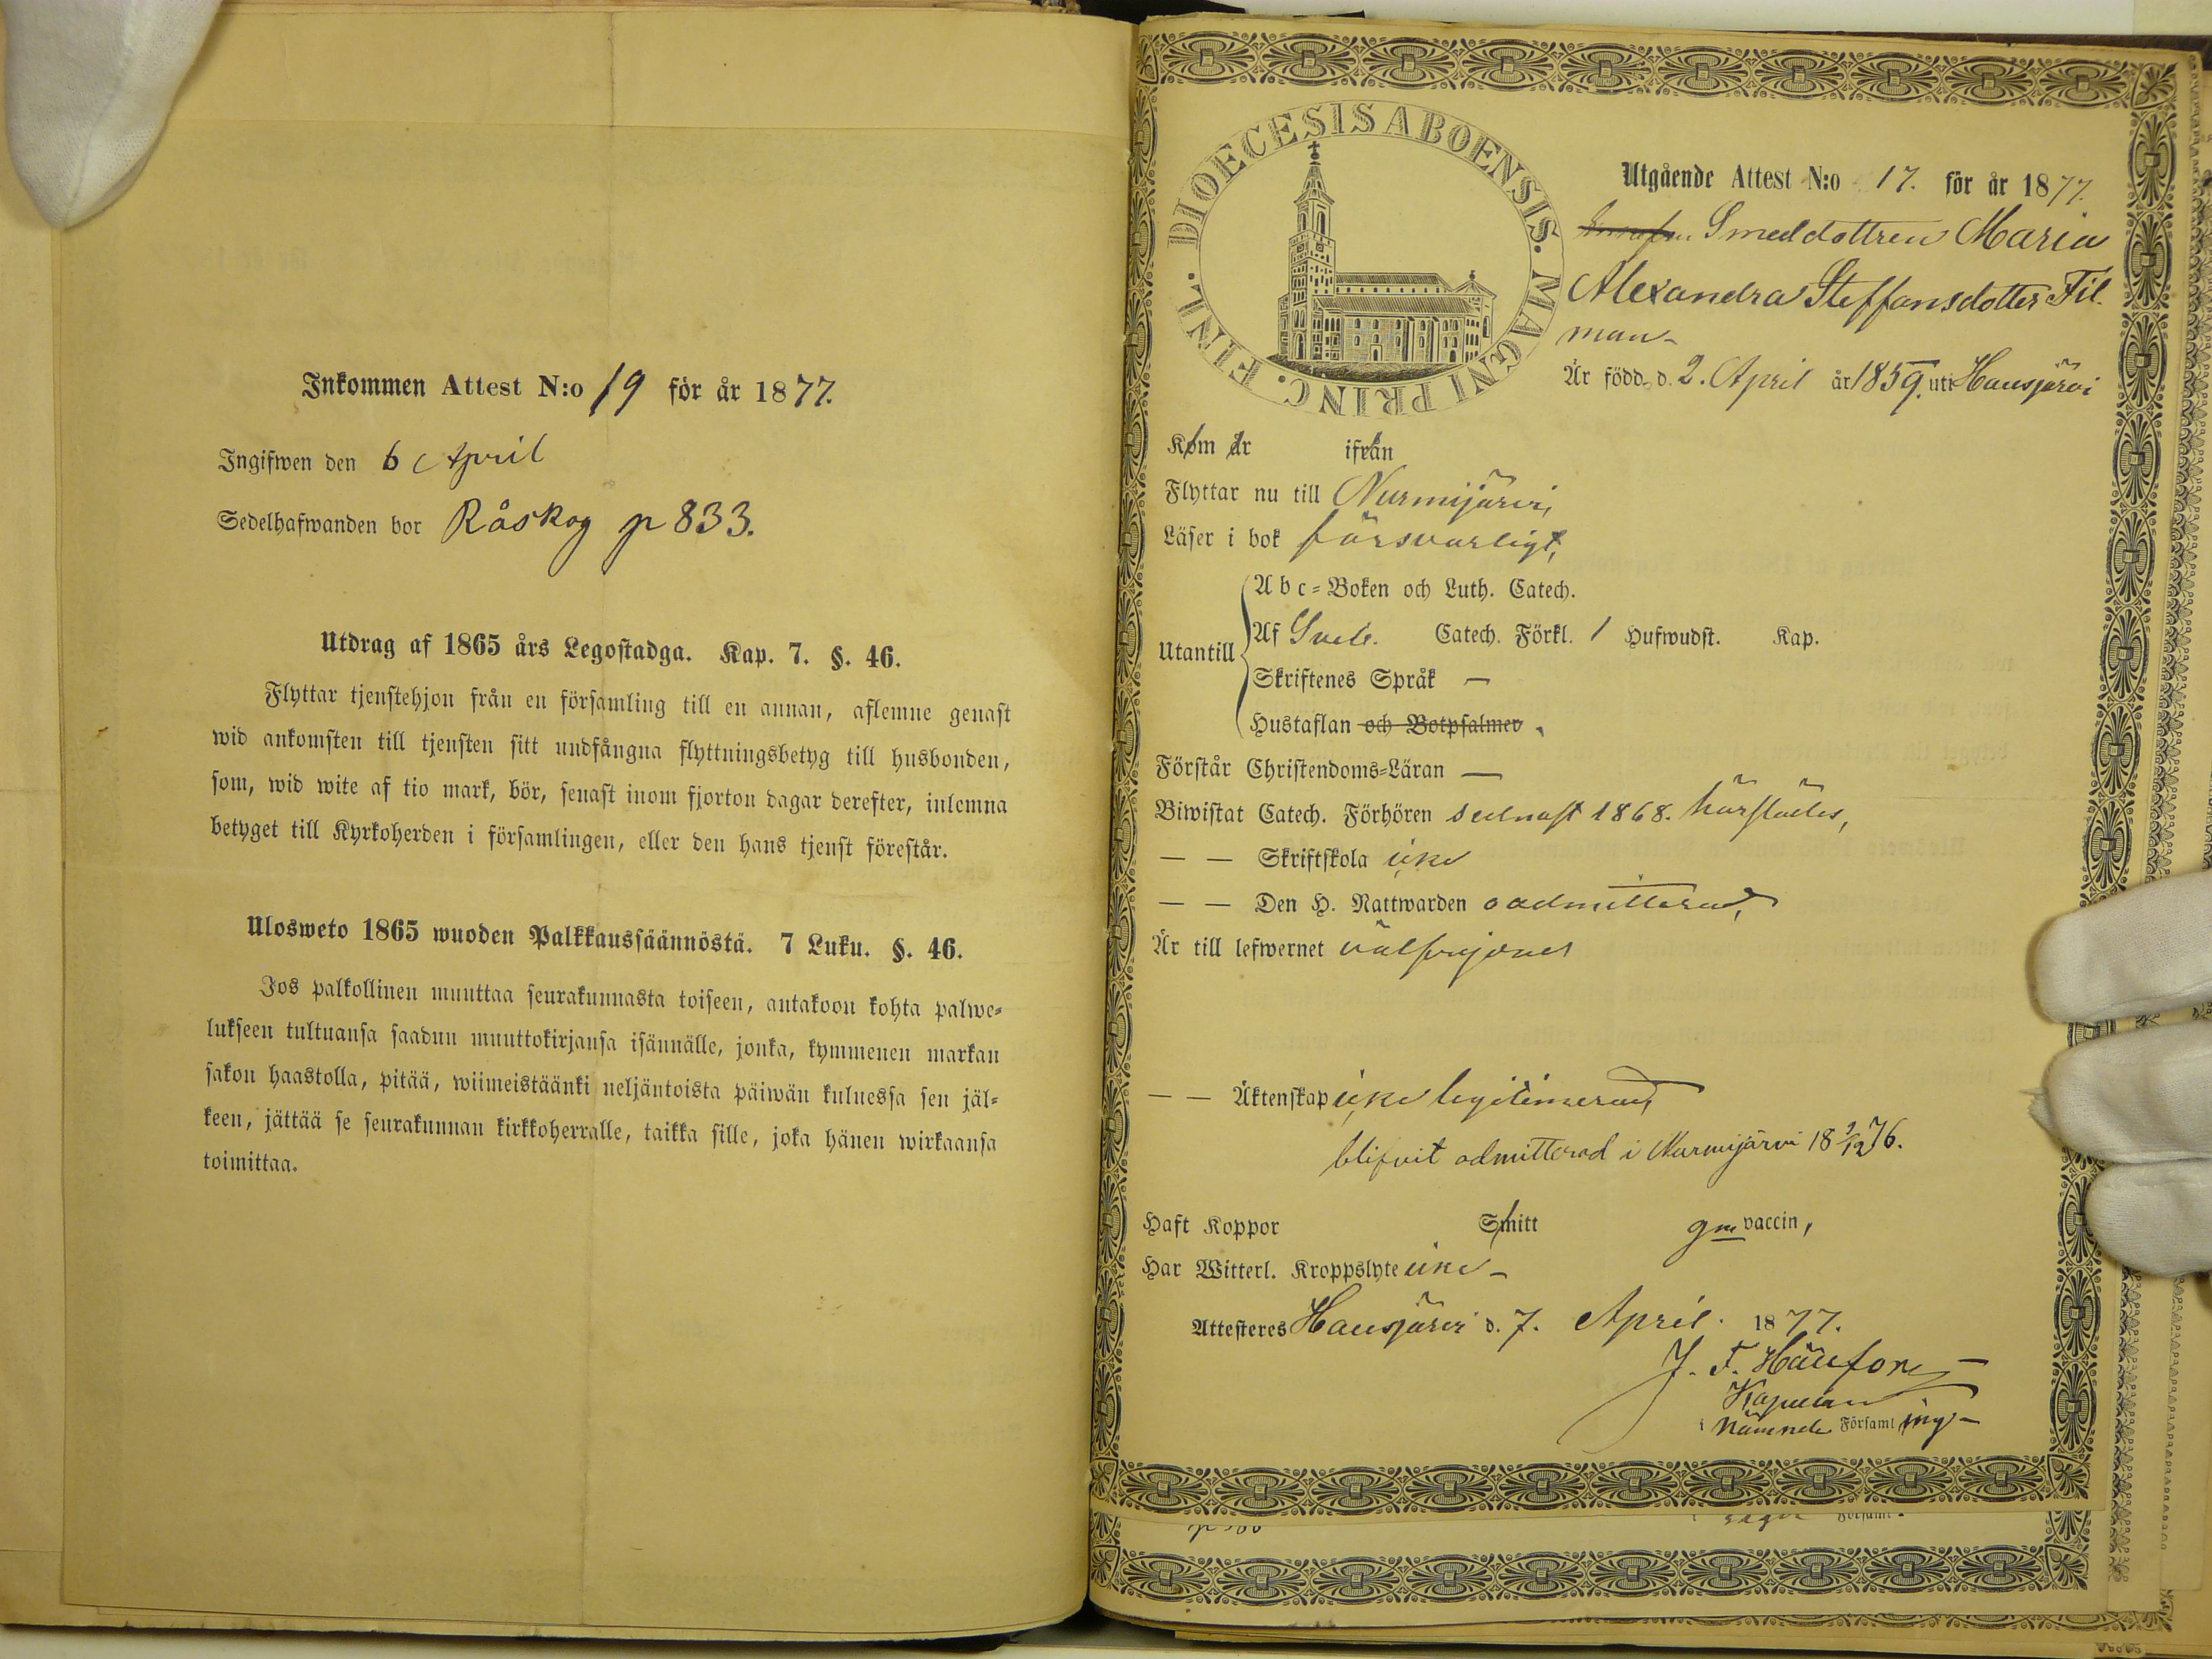 Inkommen Attest N:o 19 för år 1877.
Ingifwen den 6 April
Sedelhafwanden bor Råskog p 833.
Utdrag af 1865 års Legostadga. Kap. 7. §. 46.
Flyttar tjenstehjon från en församling till en annan, aflemne genast
wid ankomsten till tjensten sitt undfångna flyttningsbetyg till husbonden,
som, wid wite af tio mark, bör, senast inom fjorton dagar derefter, inlemna
betyget till Kyrkoherden i församlingen, eller den hans tjenst förestår.
Ulosweto 1865 wuoden Palkkaussäännöstä. 7 Luku. §. 46.
Jos palkollinen muuttaa seurakunnasta toiseen, antakoon kohta palwe-
lukseen tultuansa saadun muuttokirjansa isännälle, jonka, kymmenen markan
sakon haastolla, pitää, wiimeistäänki neljäntoista päiwän kuluessa sen jäl-
keen, jättää se seurakunnan kirkkoherralle, taikka sille, joka hänen wirkaansa
toimittaa.
DIOECESIS ABOENSIS. MAGNI PRINC. FINL.
Utgående Attest N:o 17. för år 1877.
Smeddottren Maria
Alexandra Steffansdotter Fil-
man-
Är född d. 2. April år 1859. uti Hausjärvi
Kom år ifrån
Flyttar nu till Nurmijärvi,
Läser i bok försvarligt,
Utantill
Abc-Boken och Luth. Catech.
Af Sveb. Catech. Förkl. 1 Hufwudst. Kap.
Skriftenes Språk —
Hustaflan och Botpsalmer
Förstår Christendoms-Läran —
Biwistat Catech. Förhören sednast 1868. härstädes,
— — Skriftskola icke
— — Den H. Nattwarden oadmitterad,
Är till lefwernet välfrejdad
— — Äktenskap icke legitimerad,
blifvit admitterad i Nurmijärvi 18 9/12 76.
Haft Koppor Smitt gm vaccin,
Har Witterl. Kroppslyte icke -
Attesteres Hausjärvi d. 7. April 1877.
J. F.
Kapellan
i nämnde Församling -
Församl.